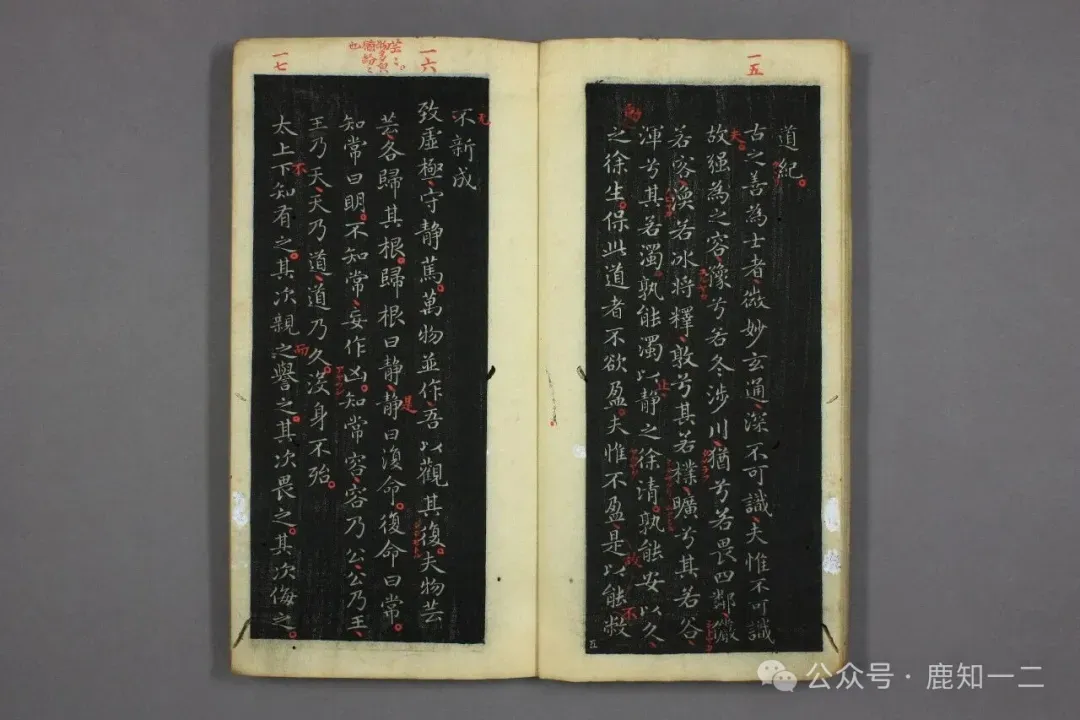 一五
道紀
古之善為士者微妙玄通深不可識夫惟不可識
夫
故强為之容豫兮若冬涉川猶兮若畏四鄰嚴
若容渙若冰將釋敦兮其若樸曠兮其若谷
止
渾兮其若濁孰能濁以静之徐清孰能安以久
故
不
之徐生保此道者不欲盈夫惟不盈是以能敝
五
一六
无
不新成
致虛極守静篤萬物並作吾以觀其復夫物芸
是
芸各歸其根歸根曰静静曰復命復命曰常
知常曰明不知常妄作凶知常容容乃公公乃王
王乃天天乃道道乃久沒身不殆
一七
不
而
太上下知有之其次親之譽之其次畏之其次侮之
公众号·鹿知一二